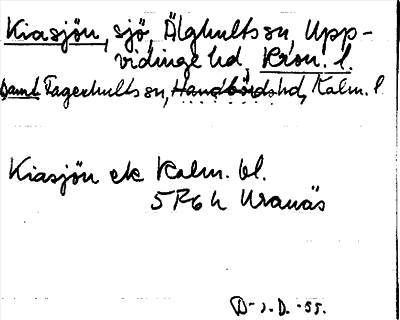 Kiasjön, sjö, Älghults sn, Upp-
vidinge hd, Kron. l.
samt Fagerhults sn, Handbörds hd, Kalm. l
Kiasjön ek Kalm. bl.
5 F 6 h Uranäs
D. -55.